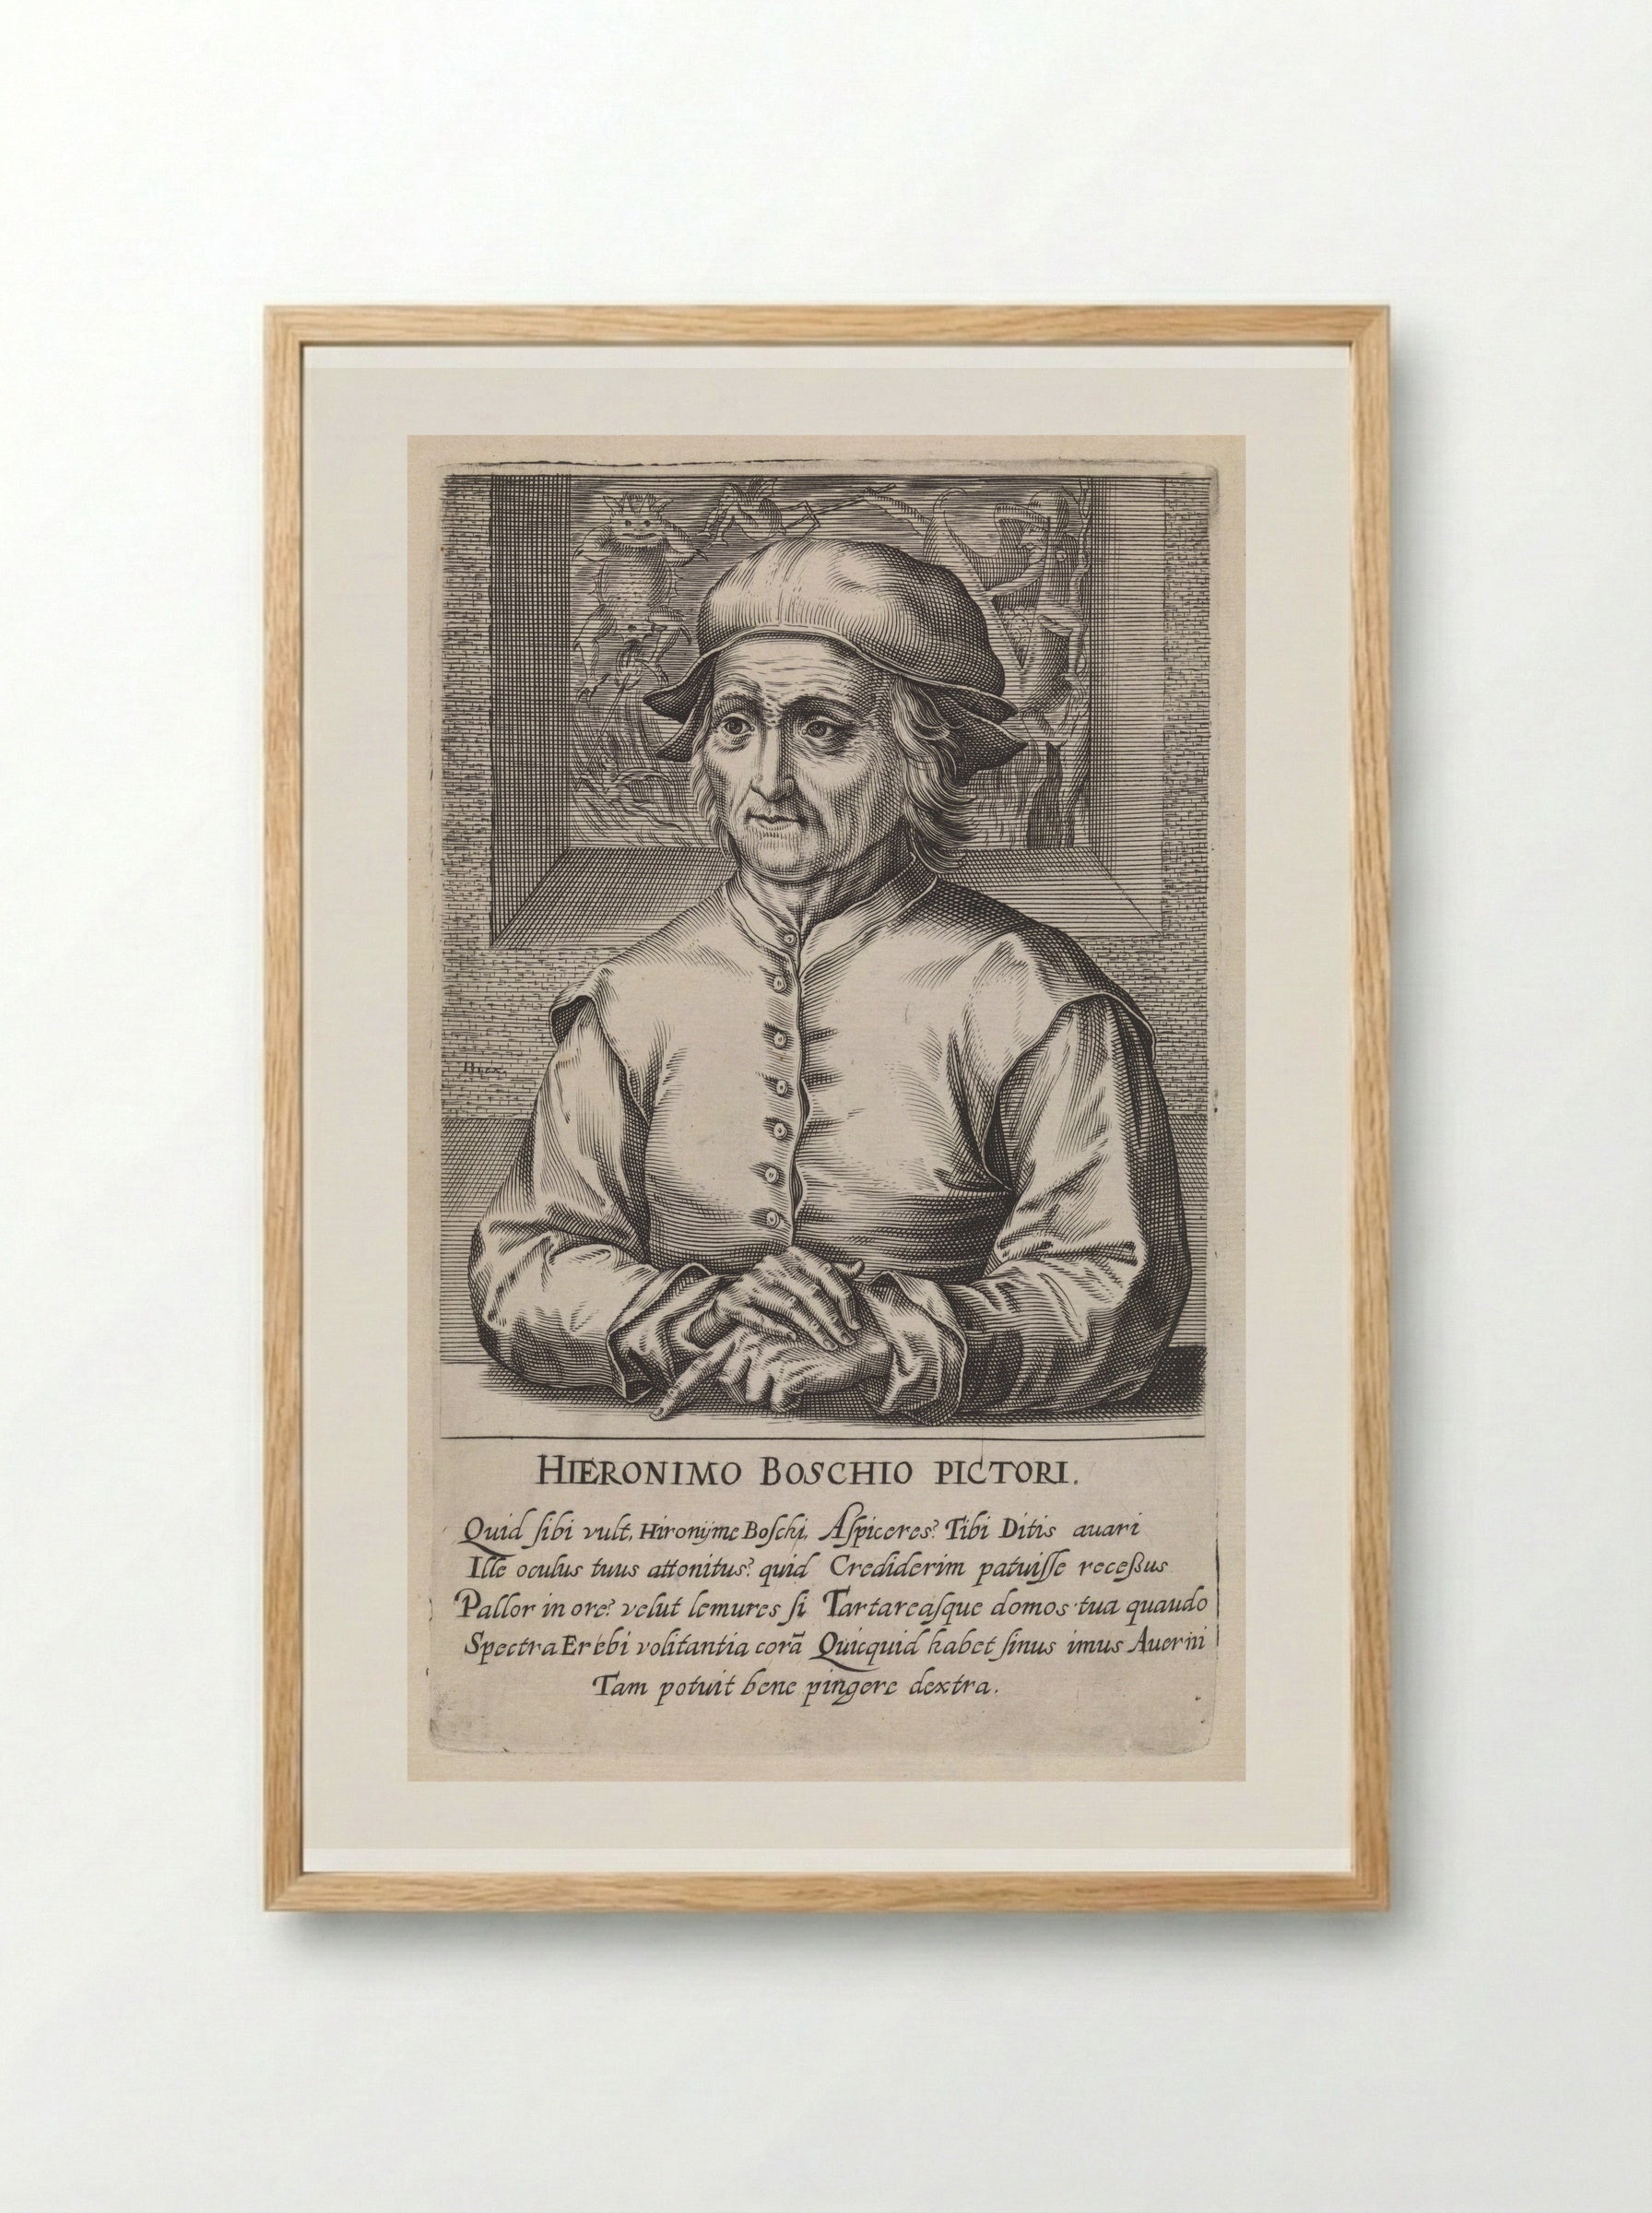 Hhex.
HIERONIMO BOSCHIO PICTORI.
Quid ſibi vult, Hironijme Boſchi, Aſpiceres? Tibi Ditis auari
Ille oculus tuus attonitus? quid Crediderim patuiſſe receßus
Pallor in ore? velut lemures ſi Tartareaſque domos tua quando
Spectra Erebi volitantia corā Quicquid habet ſinus imus Auerni
Tam potuit bene pingere dextra.